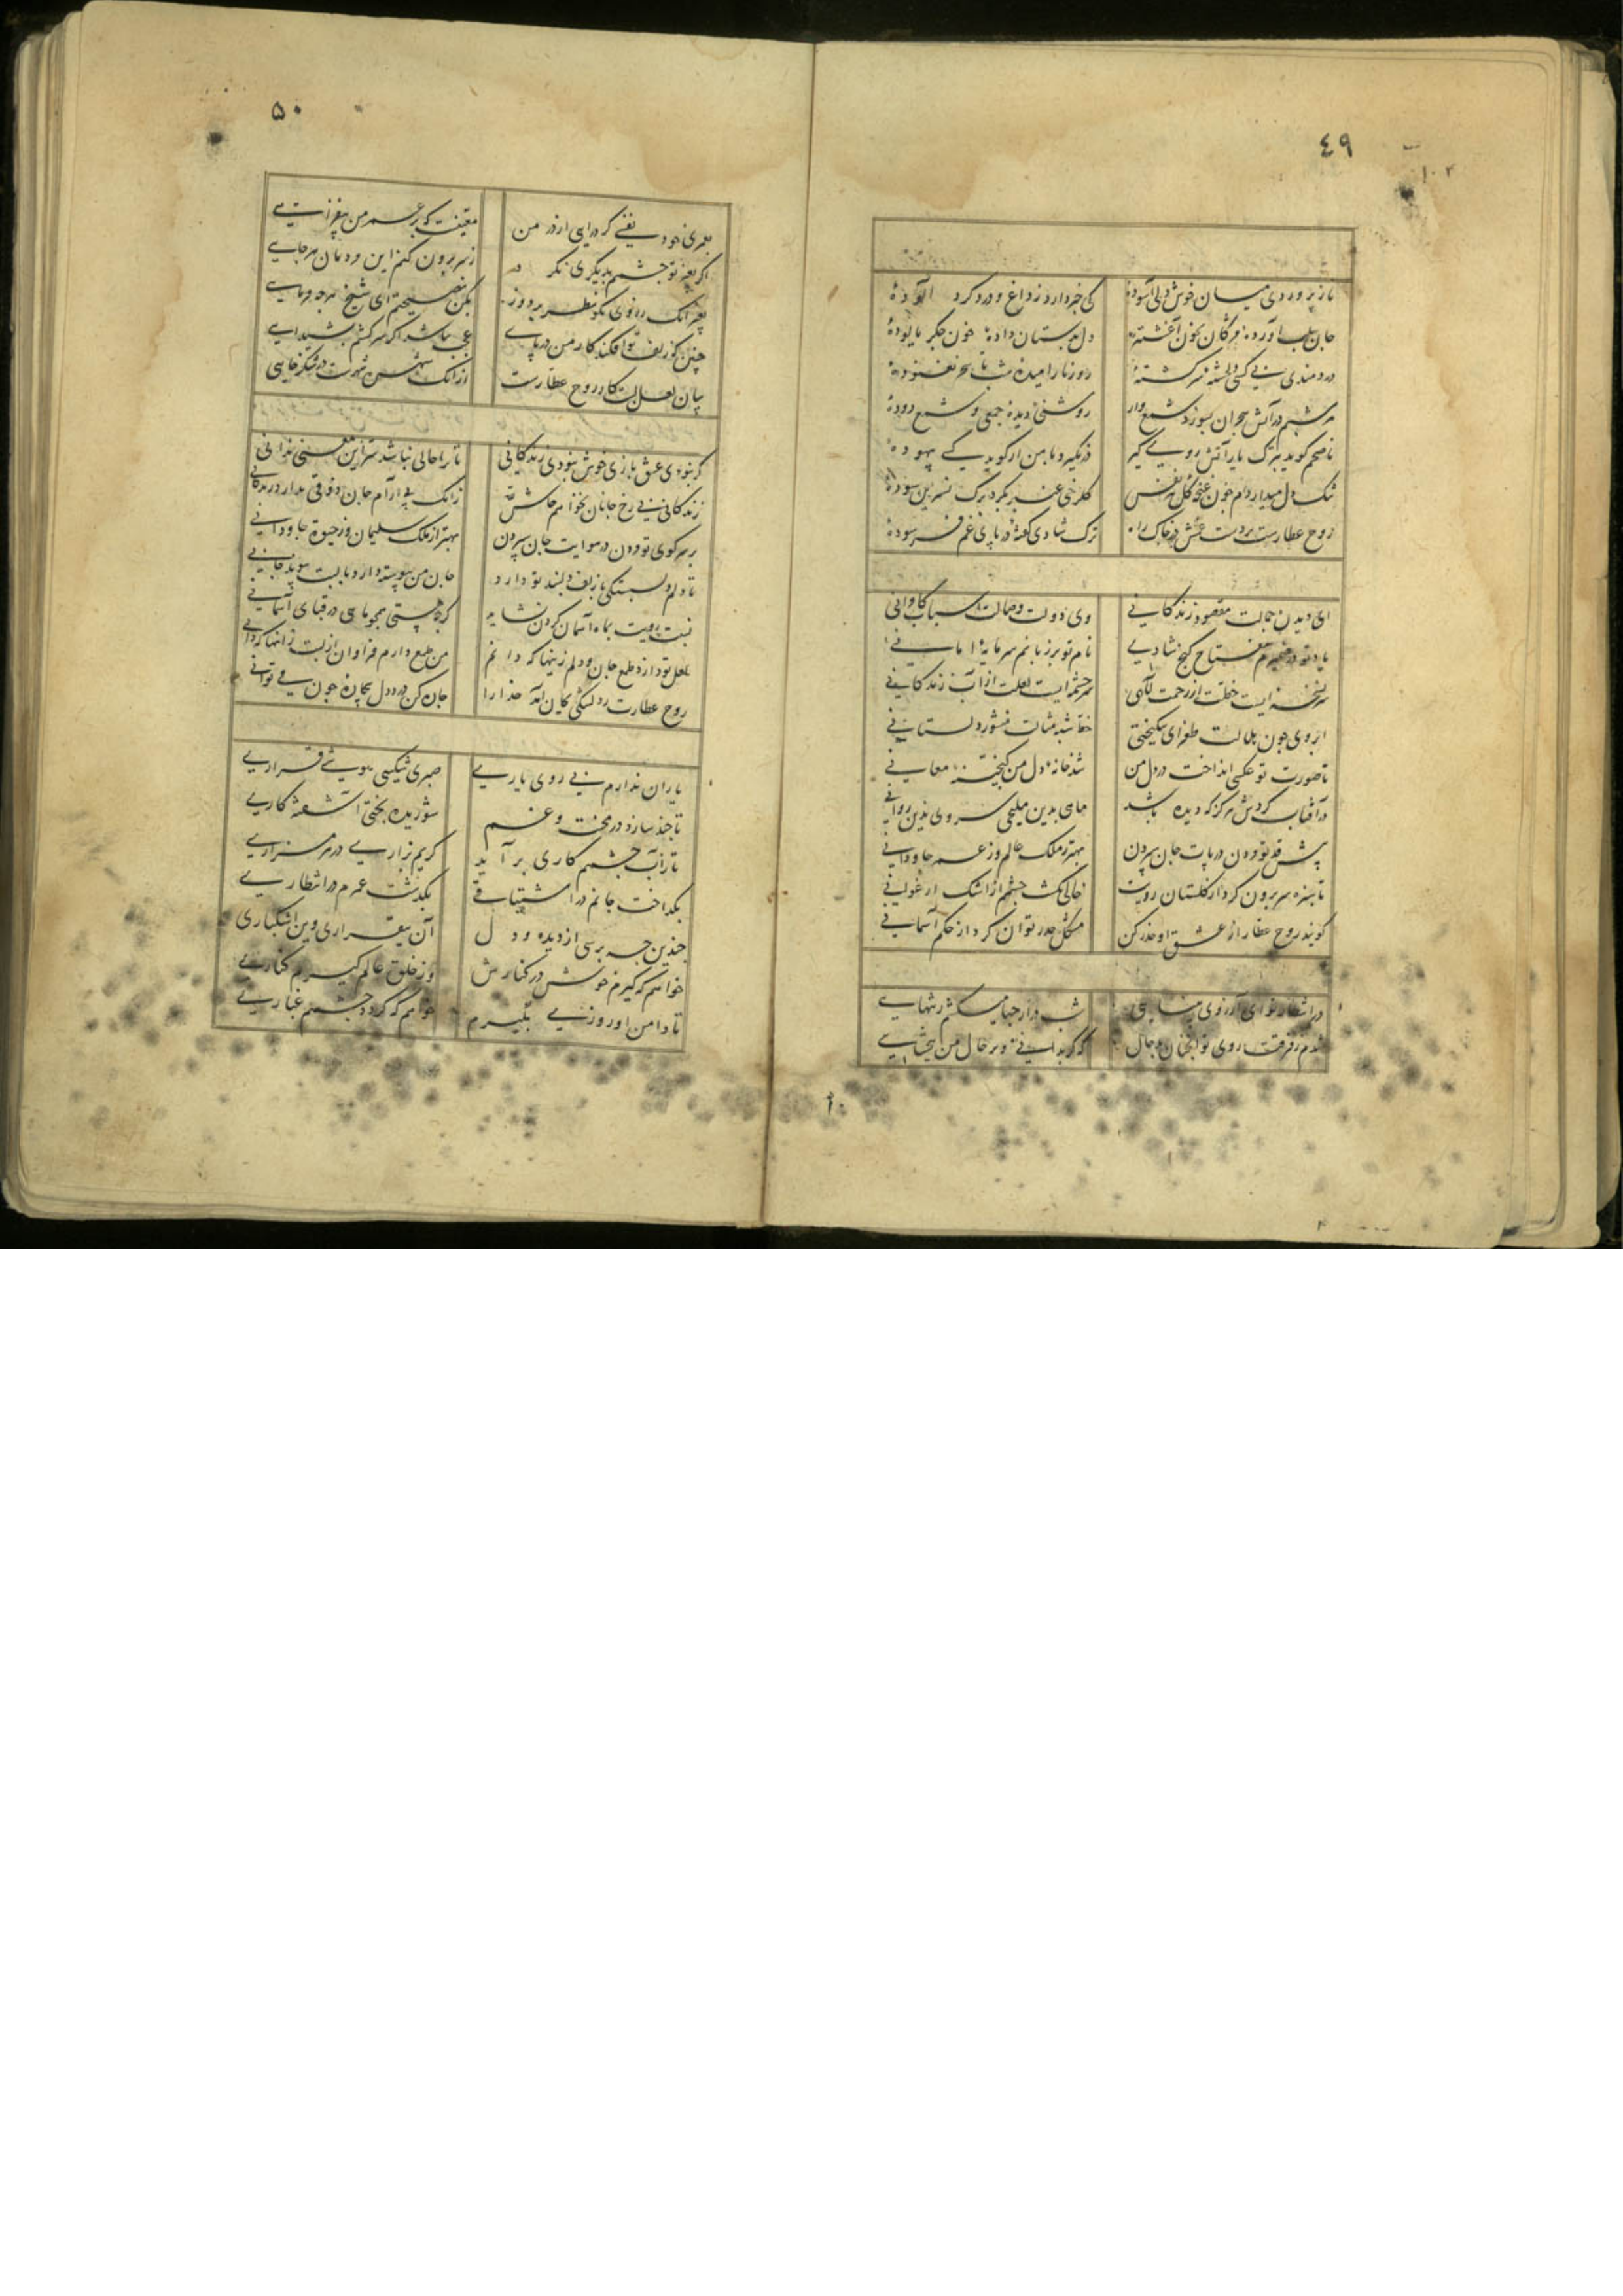 ٤٩
ناز پروردی میان خوش دلی آسودهٔ
کی خبر دارد ز داغ و درد گرد آلودهٔ
جان بلب آورده مژگان بخون آغشتهٔ
دل بدستان دادهٔ خون جگر پالودهٔ
دردمندی بی کسی سرکشتهٔ
روز نارامیدهٔ شب تا سحر نغنودهٔ
هر شبم در آتش هجران بسوزد شمع وار
روشنی نادیدهٔ جمعی و شمع دودهٔ
ناصحم کوید بترک یار آتش روی کیر
در نکیرد با من ار کوید کسی بیهودهٔ
تنک دل میداردم خون غنچه کل هر نفس
کلرخی عنبر بکرد برک نسرین سودهٔ
روح عطارست بر دست در خاک راه
ترک شادی کفتهٔ در پای غم فرسودهٔ
ای دیدن جمالت مقصود زندکانی
وی دولت وصالت اسباب کامرانی
یاد تو در ضمیرم مفتاح کنج شادی
نام تو بر زبانم سرمایهٔ امانی
سر نسخه ایست خطت از رحمت الهی
سرچشمه ایست لعلت از آب زندکانی
ابروی چون هلالت طغرای نیکبختی
منشور دلستانی
تا صورت تو عکسی انداخت در دل من
شد خانهٔ دل من کنجینهٔ معانی
در آفتاب کردش هرکز که دیده باشد
ماهی بدین ملیحی سروی بدین روانی
پیش قد تو در پات جان سپردن
بهتر ز ملک عالم وز عمر جاودانی
تا سبزه سر برون کرد از کلستان رویت
خالی نکشت چشمم از اشک ارغوانی
کویند روح عطار از عشق او حذر کن
مشکل حذر توان کرد از حکم آسمانی
در انتظار تو ای آرزوی
شب دراز میکشم ز تنهایی
شدم ز فرقت روی تو آنچنان
که کر بدانی بر حال من ببخشایی
۵۰
بعمری خود نفسی کر درآیی از در من
که بر عمر من بیفزایی
اکر بغیر تو چشمم بدیکری نکرد
ز سر برون کنم این دیدهان هرجایی
بغیر آنک ز روی نکو نظر بردوز
بکن نصیحتم ای شیخ هرچه فرمایی
چنین که زلف تو افکند کار من در پای
عجب نباشد اکر سرکشم بشیدایی
بیان لعل لبت کار روح عطارست
از آنک شهره شهرست در شکرخایی
کر نبودی عشق بازی خوش نبودی زندکانی
تا ترا حالی نباشد سر این معنی ندانی
زندکانی بی رخ جانان نخواهم
زانک بی آرام جان ذوقی ندارد زندکانی
بر سر کوی تو در هوایت جان سپردن
بهتر از ملک سلیمان وز حیوة جاودانی
تا دلم دلبستکی با زلف دلبند تو دارد
جان من پیوسته دارد با لبت پیوند جانی
نسبت رویت بماه آسمان کردن نشاید
کرچه هستی همچو ماهی در قبای آسمانی
لعل تو دارد طمع جان و دلم زینها که دانم
من طمع دارم فراوان از لبت زانها که دانی
روح عطارت
جان من
یاران ندارم بی روی یاری
صبری شکیبی هوشی قراری
تا چند سازد در محنت و غم
شوریده بختی آشفته کاری
تا ز آب چشمم کاری بر آید
کریم بزاری در هر مزاری
بکداخت جانم در اشتیاقی
بکذشت عمرم در انتظاری
چندین چه پرسی از دیده و دل
آن بیقراری وین اشکباری
خواهم که کیرم خوش در کنارش
وز خلق عالم کیرم کناری
تا دامن او روزی بکیرم
خواهم که کردد جسمم غباری